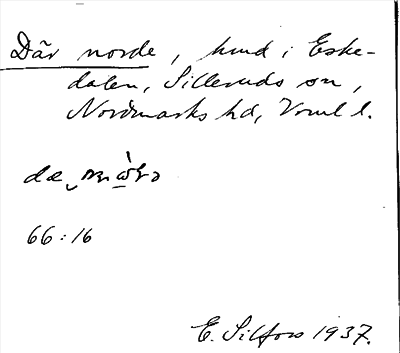 Där norde, hund i Eske-
dalen, Silleruds sn,
Nordmarks hd, Vrml l.
66:16
E. Silfors 1937.